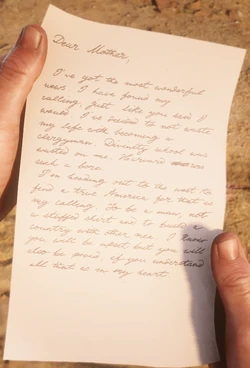 Dear Mother,
I've got the most wonderful
news. I have found my
calling, just like you said I
would. I've decided to not waste
my life with becoming a
clergyman. Divinity school was
wasted on me. Harvard was
such a bore.
I'm heading out to the west to
find a true America for that is
my calling. To be a man, not
a stuffed shirt and to build a
country with other men. I know
you will be upset but you will
also be proud if you understand
all that is in my heart.